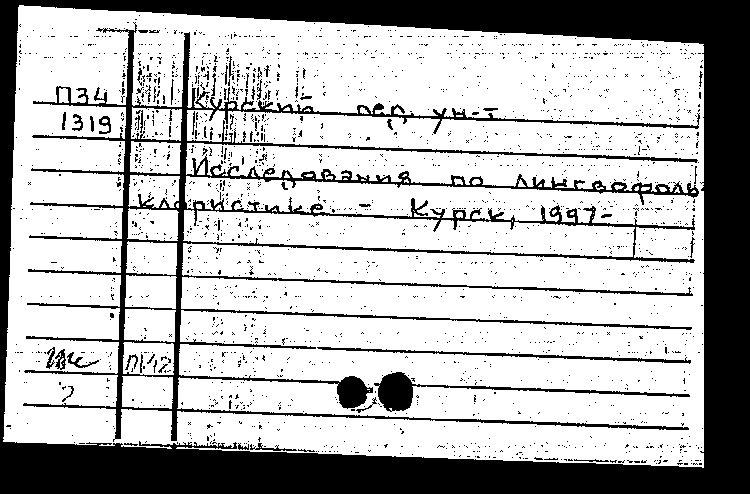 П34
1319
Курский пед. ун-т
Исследования по лингвофоль-
клористике. - Курск, 1997-